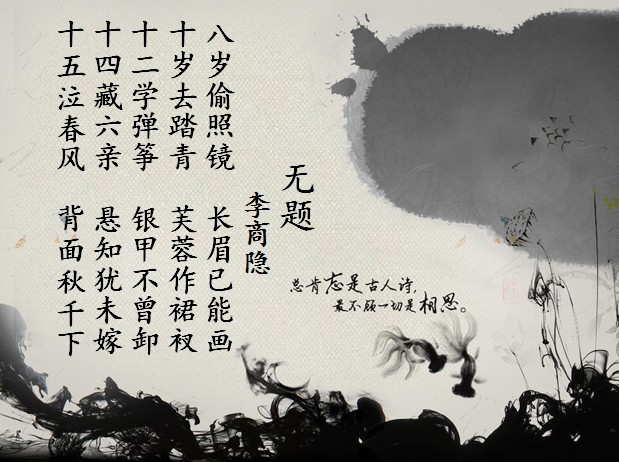 无题
李商隐
八岁偷照镜 长眉已能画
十岁去踏青 芙蓉作裙衩
十二学弹筝 银甲不曾卸
十四藏六亲 悬知犹未嫁
十五泣春风 背面秋千下
总肯忘是古人诗，
最不顾一切是相思。